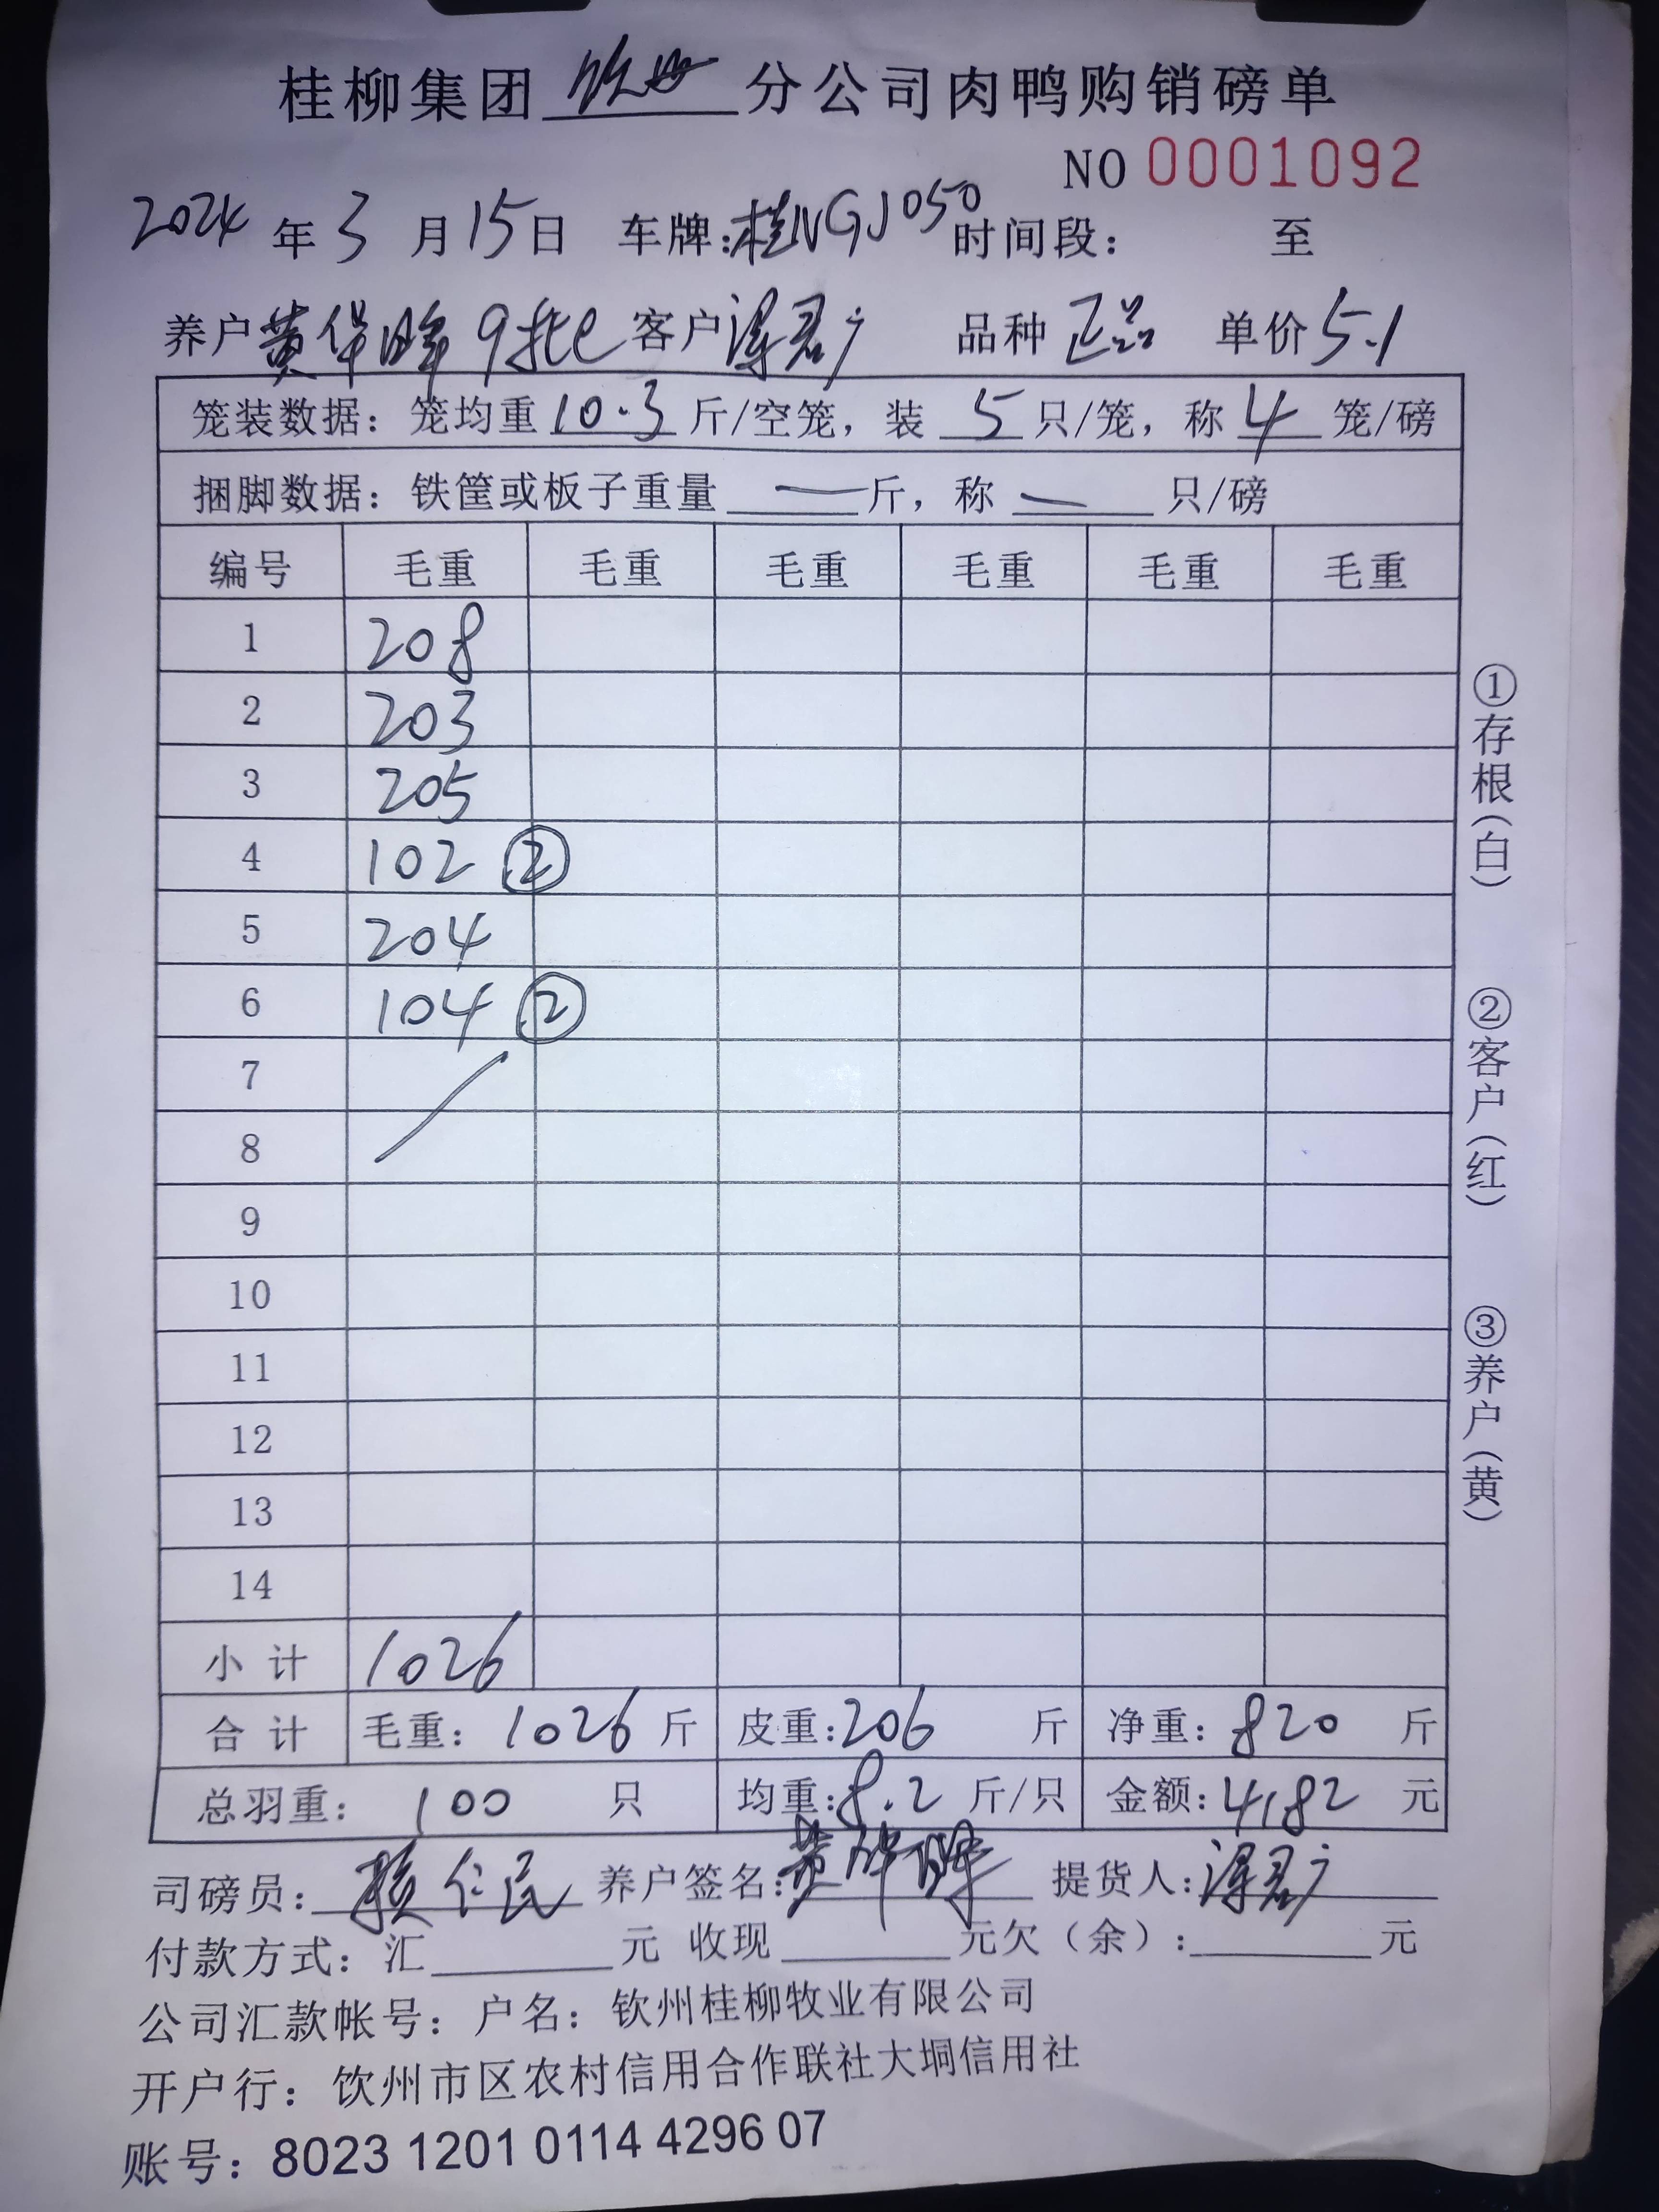 桂柳集团 钦州 分公司肉鸭购销磅单
NO 0001092
2024 年 3 月 15 日 车牌:桂NGJ050 时间段: 至
养户 黄华峰 9批 客户 品种 正品 单价 5.1
笼装数据: 笼均重 10.3 斤/空笼, 装 5 只/笼, 称 4 笼/磅
捆脚数据: 铁筐或板子重量 — 斤, 称 — 只/磅
编号 毛重 毛重 毛重 毛重 毛重 毛重
1 208
2 203
3 205
4 102 ②
5 204
6 104 ②
7
8
9
10
11
12
13
14
小计 1026
合计 毛重: 1026 斤 皮重: 206 斤 净重: 820 斤
总羽重: 100 只 均重: 8.2 斤/只 金额: 4182 元
司磅员: 仁民 养户签名: 黄华峰 提货人:
付款方式: 汇 元 收现 元欠(余): 元
公司汇款帐号: 户名: 钦州桂柳牧业有限公司
开户行: 钦州市区农村信用合作联社大垌信用社
账号: 8023 1201 0114 4296 07
①存根(白)
②客户(红)
③养户(黄)